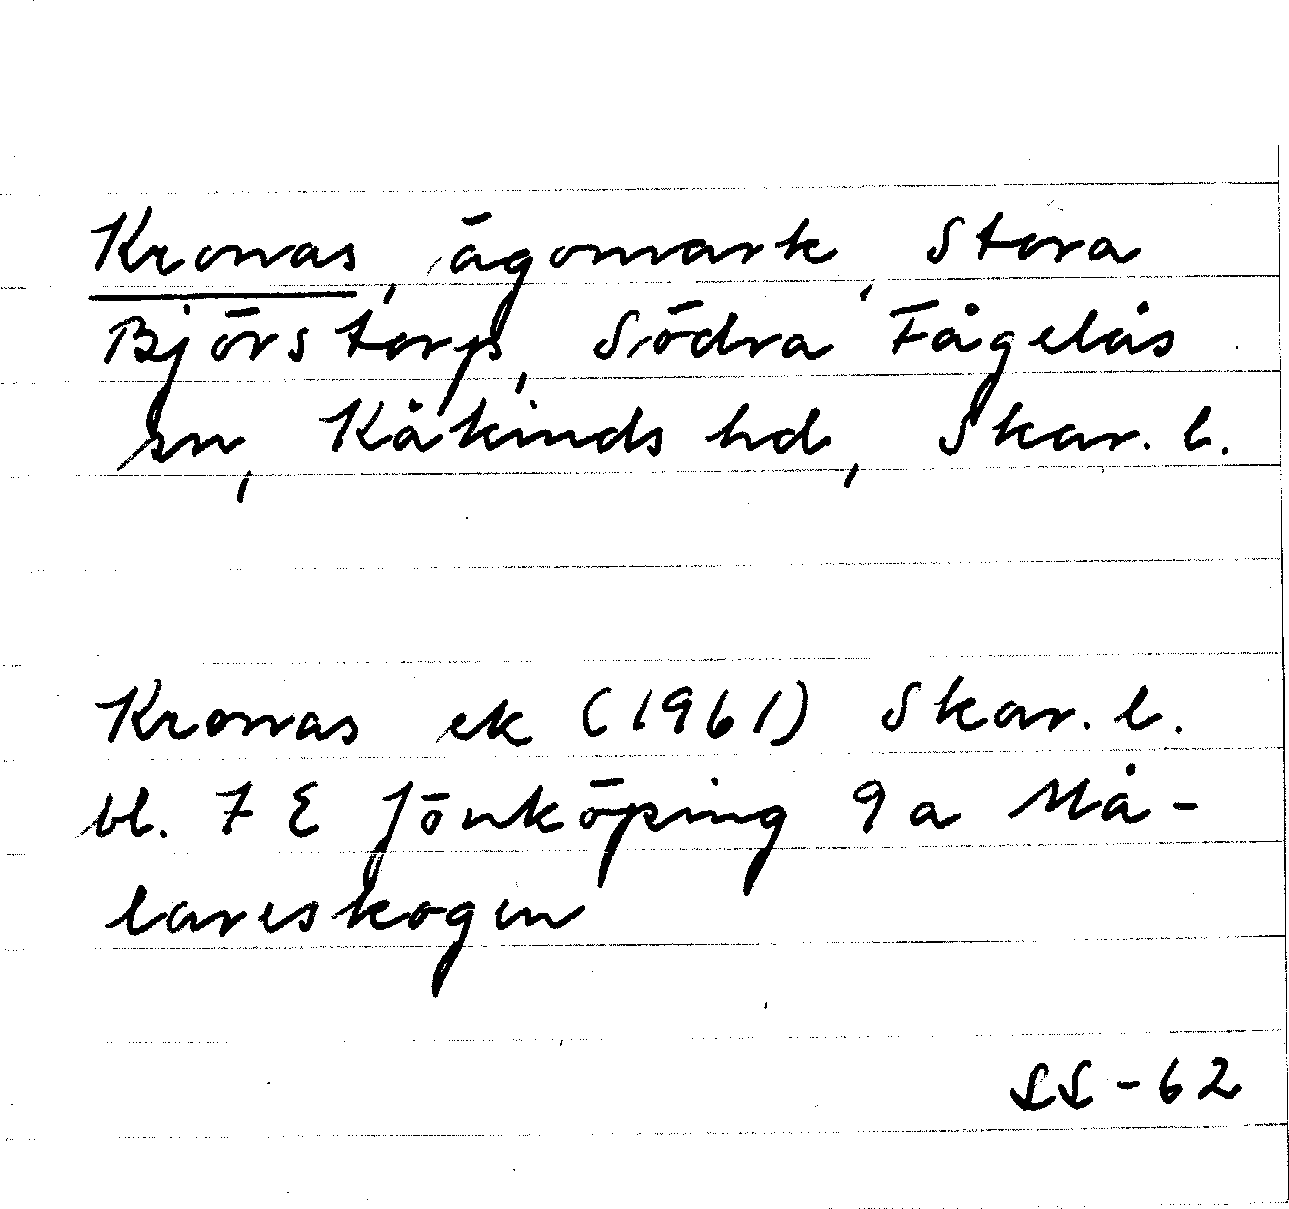 Kronas, ägomark, Stora
Björstorp, Södra Fågelås
sn, Kåkinds hd, Skar. l.
Kronas ek (1961) Skar. l.
bl. 7 E Jönköping 9 a Må-
lareskogen
SS - 62